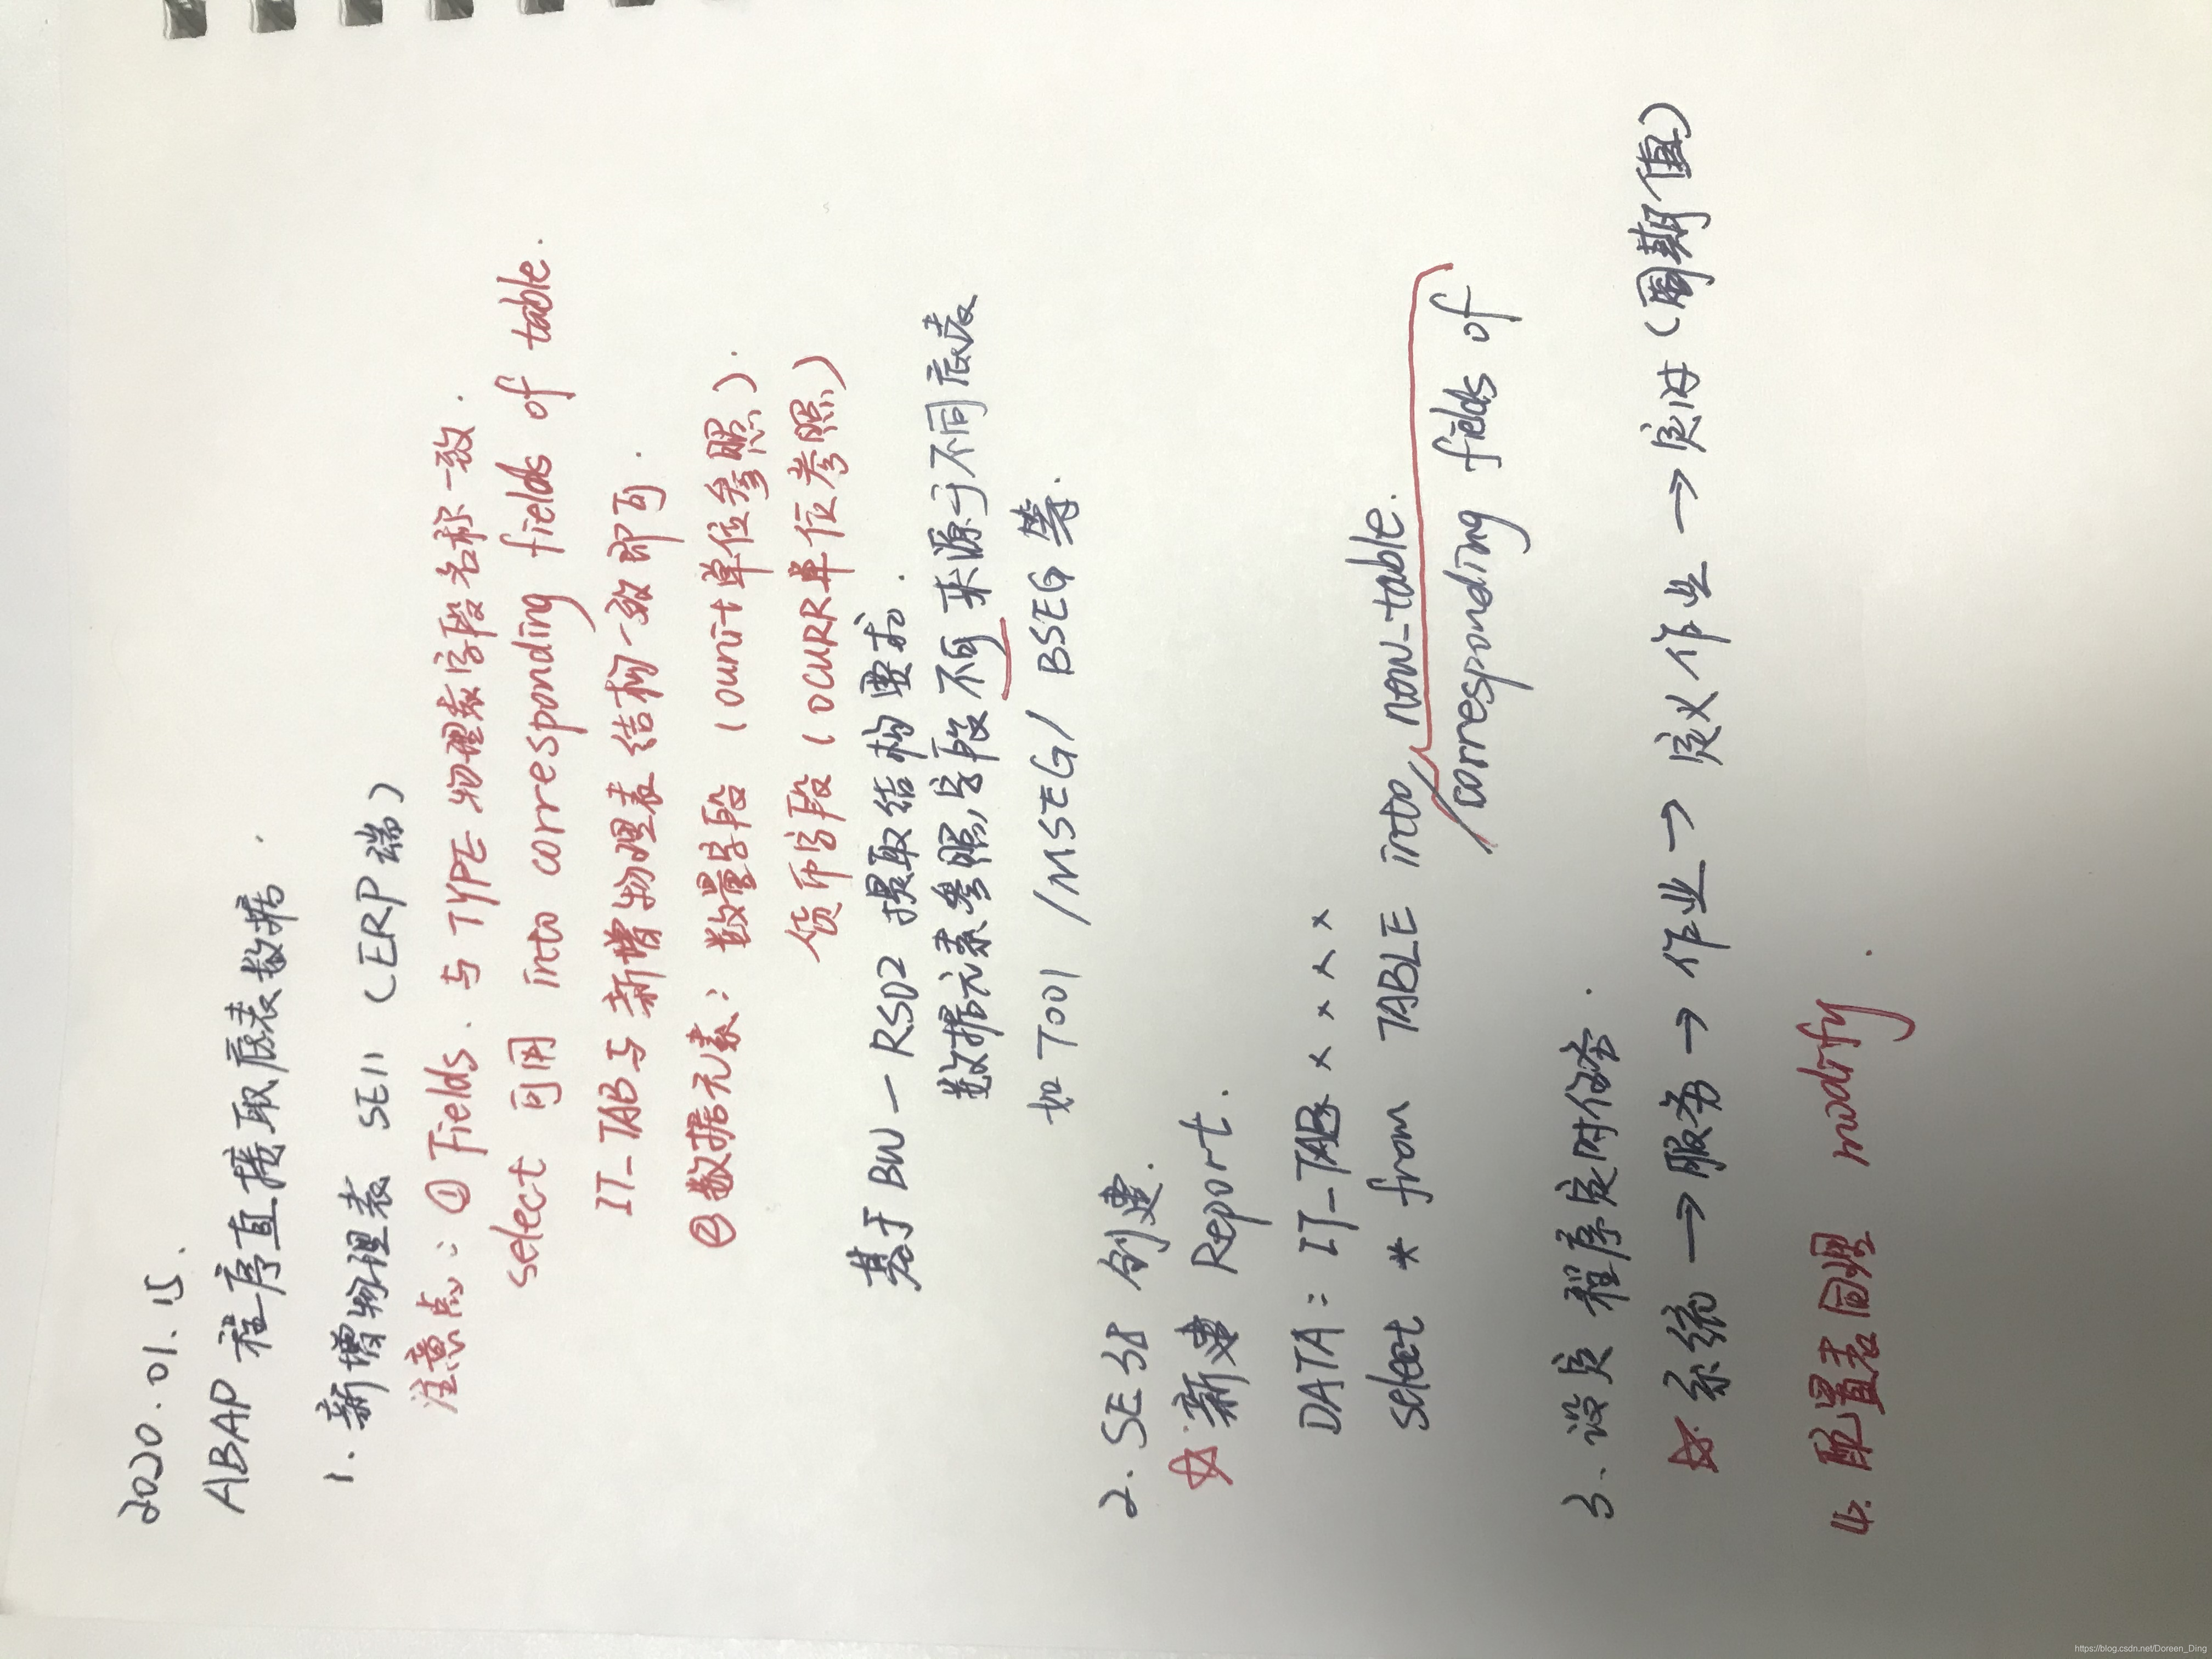 2020.01.15.
ABAP 程序直接取底表数据.
1.新增物理表 SE11 (ERP端)
注意点:①Fields.与TYPE物理表字段名称一致.
select 可用 into corresponding fields of table.
IT-TAB与新增物理表结构一致即可.
②数据元素:数量字段 (ounit单位参照).
货币字段 (OCURR单位参照)
基于BW-RSO2提取结构要求.
数据元素参照,字段不可来源于不同底表
如T001/MSEG/BSEG等.
2.SE38 创建.
☆新建 Report.
DATA: IT-TAB x x x x
select * from TABLE into new-table.
corresponding fields of
3.设定程序定时任务.
☆系统→服务→作业→定义作业→定时(周期值)
4.配置表同理 modify.
https://blog.csdn.net/Doreen_Ding